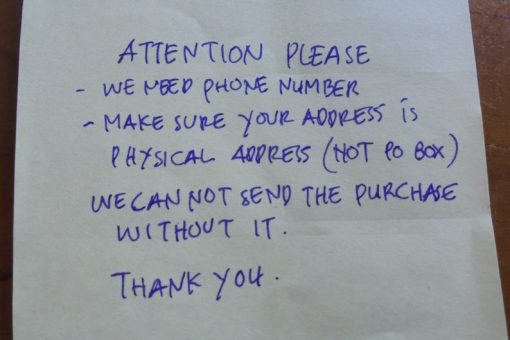 ATTENTION PLEASE
- WE NEED PHONE NUMBER
- MAKE SURE YOUR ADDRESS is
PHYSICAL ADDRESS (NOT PO BOX)
WE CAN NOT SEND THE PURCHASE
WITHOUT IT.
THANK YOU.